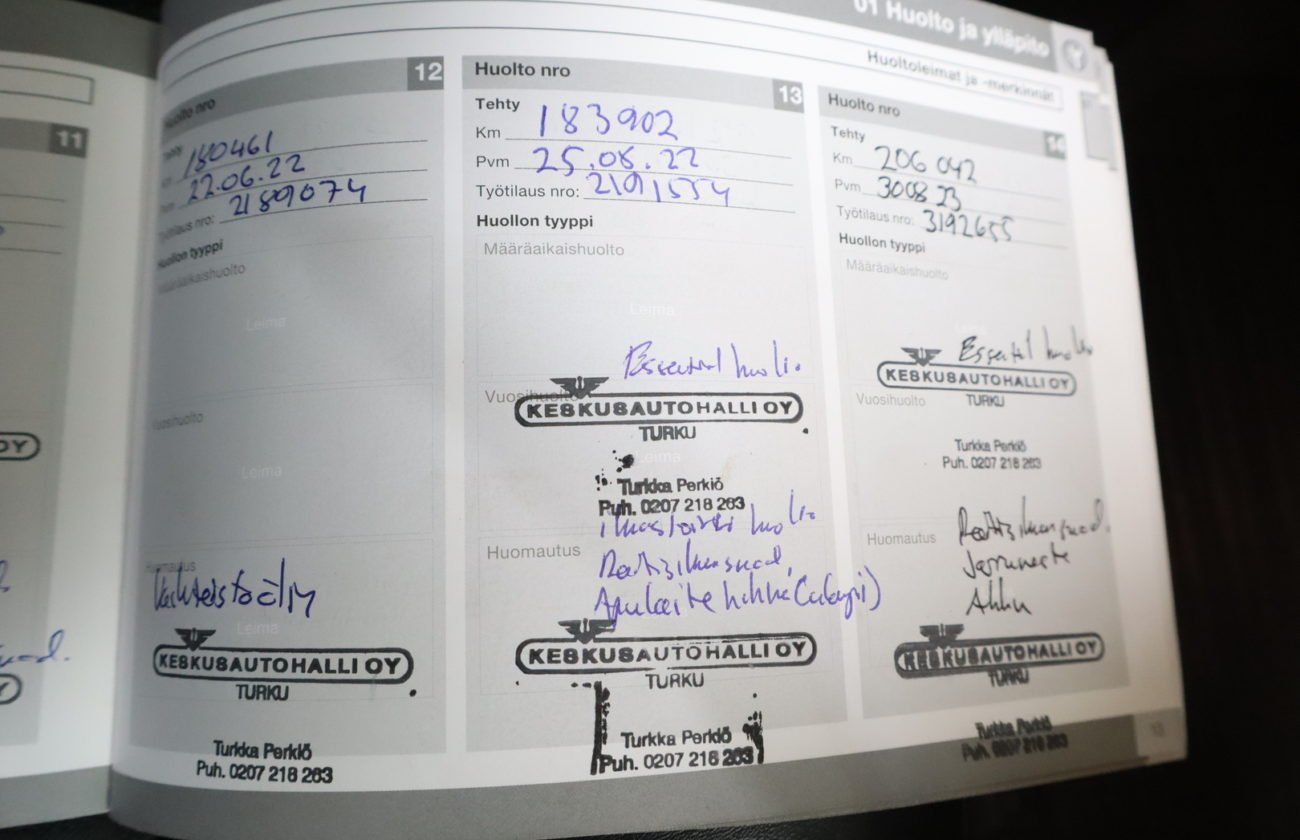 01 Huolto ja ylläpito
Huoltoleimat ja -merkinnät
11
OY
Huolto nro 12
Tehty
Km 180461
Pvm 22.06.22
Työtilaus nro: 2189074
Huollon tyyppi
Määräaikaishuolto
Leima
Vuosihuolto
Leima
Huomautus
Leima
KESKUSAUTOHALLI OY
TURKU
Turkka Perkiö
Puh. 0207 218 263
Huolto nro 13
Tehty
Km 183902
Pvm 25.08.22
Työtilaus nro: 2191554
Huollon tyyppi
Määräaikaishuolto
Leima
Essential huolto
Vuosihuolto
KESKUSAUTOHALLI OY
TURKU
Leima
Turkka Perkiö
Puh. 0207 218 263
Ilmastointi huolto
Huomautus Raitisilmasuod.
Apulaite hihna
KESKUSAUTOHALLI OY
TURKU
Turkka Perkiö
Puh. 0207 218 263
Huolto nro 14
Tehty
Km 206 042
Pvm 300823
Työtilaus nro: 3192655
Huollon tyyppi
Määräaikaishuolto
Essential huolto
KESKUSAUTOHALLI OY
Vuosihuolto TURKU
Turkka Perkiö
Puh. 0207 218 263
Raitisilmansuod.
Huomautus Jarruneste
Akku
KESKUSAUTOHALLI OY
TURKU
Turkka Perkiö
Puh. 0207 218 263